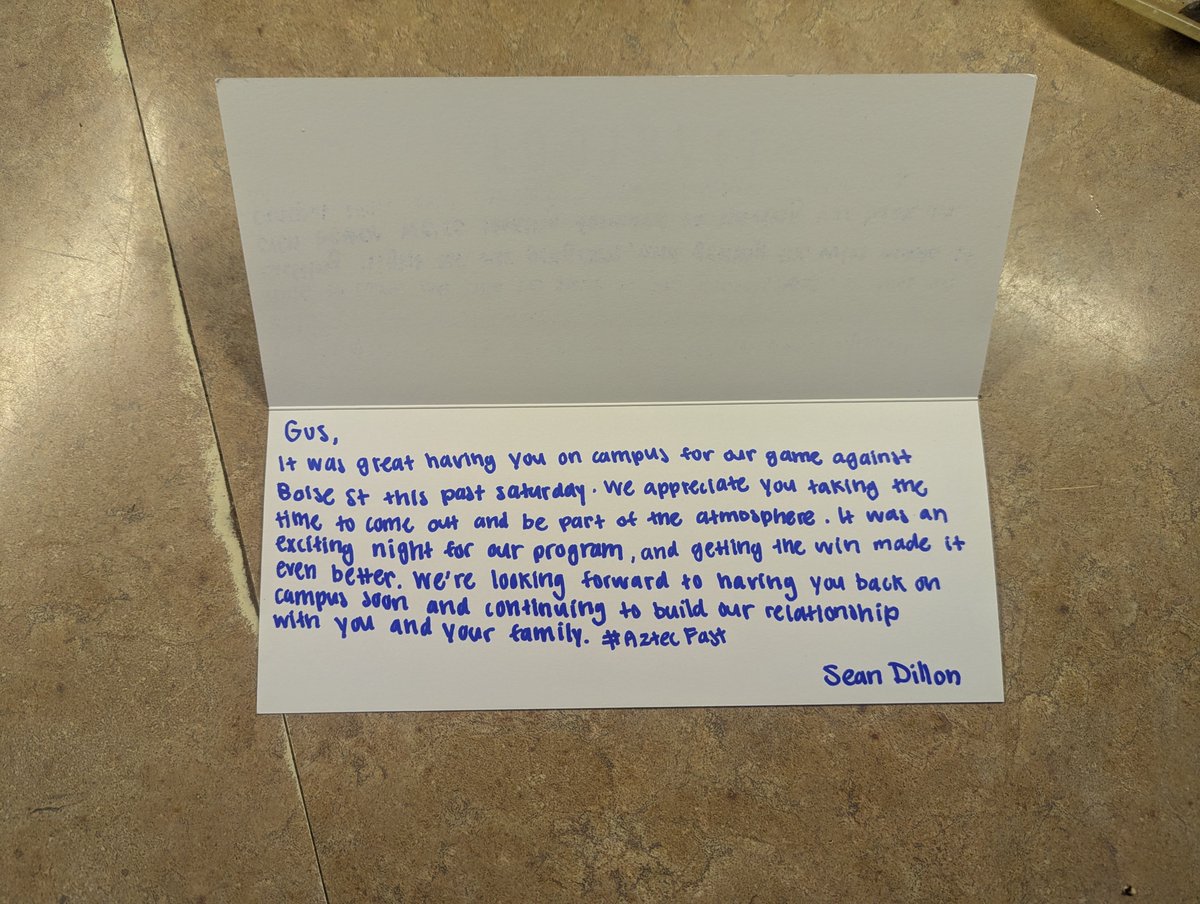 Gus,
It was great having you on campus for our game against
Boise St this past saturday. We appreciate you taking the
time to come out and be part of the atmosphere. It was an
exciting night for our program, and getting the win made it
even better. We're looking forward to having you back on
campus soon and continuing to build our relationship
with you and your family. #AztecFast
Sean Dillon